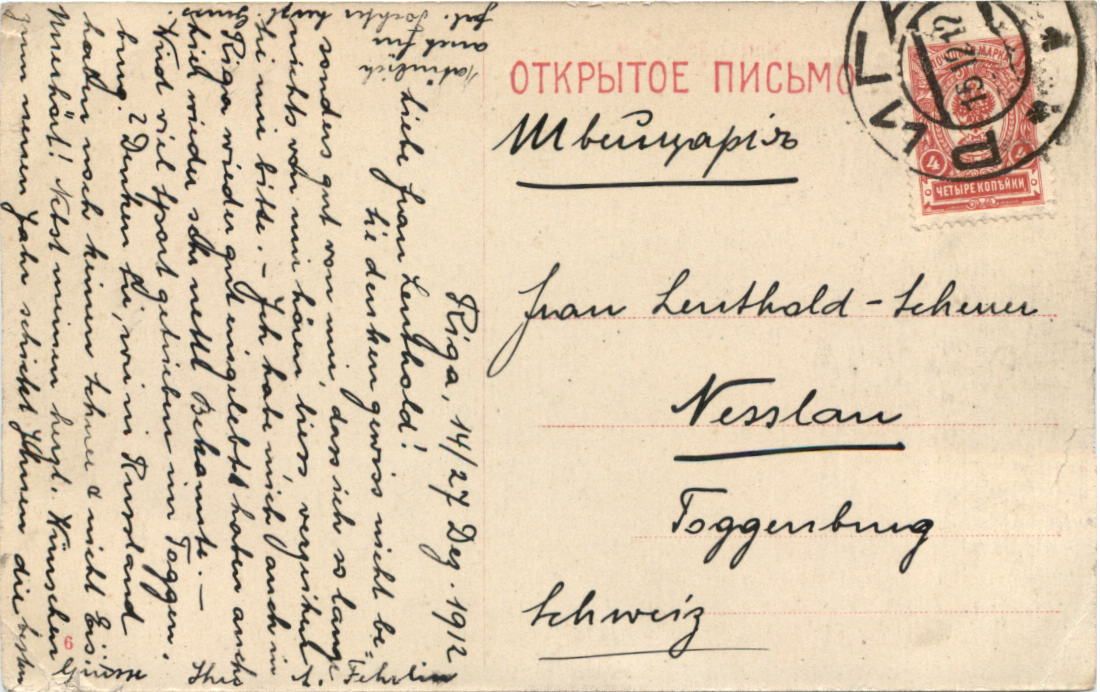 ОТКРЫТОЕ ПИСЬМО
Швейцарія
ПОЧТОВАЯ МАРКА
15 12 12
4 4
ЧЕТЫРЕ КОПѢЙКИ
Frau Leuthold-Scheuer
Nesslau
Toggenburg
Schweiz
Riga, 14/27 Dez. 1912
Liebe Frau Leuthold!
Sie denken gewiss nicht be-
sonders gut von mir, dass ich so lange
nichts von mir hören liess, verzeihen S
sie mir bitte. – Ich habe mich auch in
Riga wieder gut eingelebt & haben auch
hier wieder sehr nette Bekannte. –
Wird viel Sport getrieben im Toggen-
burg? Denken Sie, wir in Russland
hatten noch keinen Schnee & nicht Eis.
Unerhört! Nebst meinen herzl. Wünschen
zum neuen Jahr schickt Ihnen die besten
Grüsse Ihre Fehrlin
Natürlich
auch für
Tochter herzl.
Gruss
6